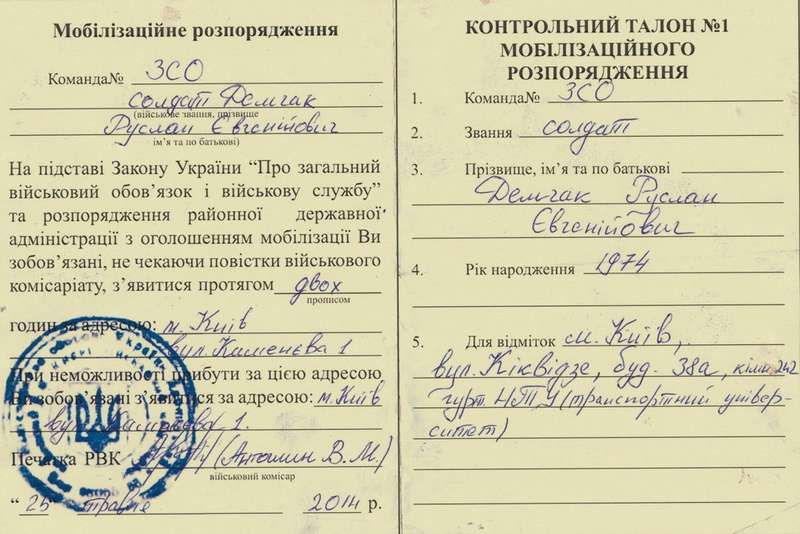 Мобілізаційне розпорядження
Команда№ ЗСО
солдат Демчак
(військове звання, прізвище
Руслан Євгенійович
ім’я та по батькові)
На підставі Закону України “Про загальний
військовий обов’язок і військову службу”
та розпорядження районної державної
адміністрації з оголошенням мобілізації Ви
зобов’язані, не чекаючи повістки військового
комісаріату, з’явитися протягом двох
прописом
годин за адресою: м. Київ
вул. Каменєва 1
При неможливості прибути за цією адресою
Ви зобов’язані з’явитися за адресою: м. Київ
вул. Каменєва 1.
Печатка РВК (Анталин В. М.)
військовий комісар
“ 25 ” травня 2014 р.
КОНТРОЛЬНИЙ ТАЛОН №1
МОБІЛІЗАЦІЙНОГО
РОЗПОРЯДЖЕННЯ
1. Команда№ ЗСО
2. Звання солдат
3. Прізвище, ім’я та по батькові
Демчак Руслан
Євгенійович
4. Рік народження 1974
5. Для відміток м. Київ,
вул. Кіквідзе, буд. 38а, кімн 242
гурт НТУ (транспортний універ-
ситет)